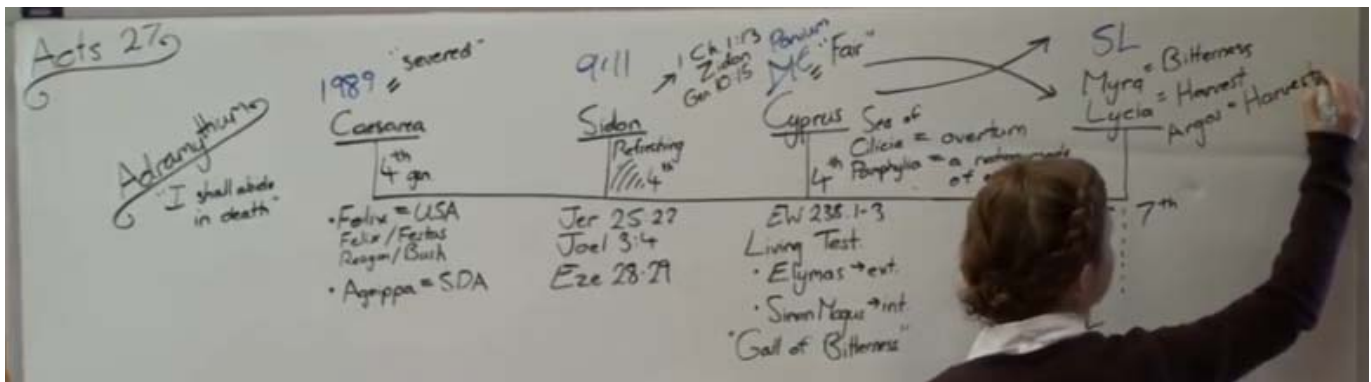 Acts 27
Adramythum
"I shall abide
in death"
1989 "severed"
Caesarea
4th
gen
• Felix = USA
Felix/Festus
Reagan/Bush
• Agrippa = SDA
9:11
Sidon
Refreshing
4th
Jer 25:22
Joel 3:4
Eze 28:29
1 Ch 1:13
Zidon
Gen 10:15
"Fair"
Cyprus
4th
Sea of
Cilicia = overturn
Pamphylia = a
of
EW 238.1-3
Living Test
• Elymas → ext.
• Simon Magus → int.
"Gall of Bitterness"
SL
Myra = Bitterness
Lycia = Harvest
Argos = Harvest
7th